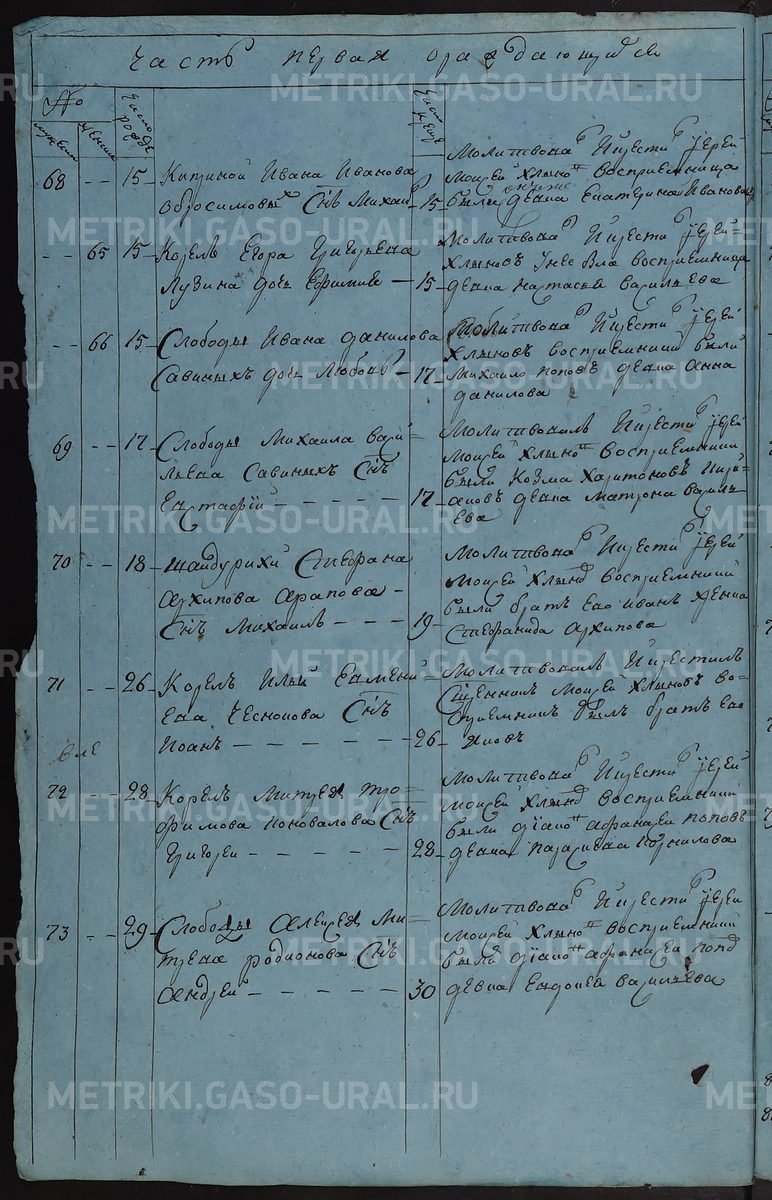 Часть первая ораждающихся
№
мужеска
женска
число рожде
число креще
68 -- 15 Кипиной Ивана Иванова
Обросимовы Снъ Михаи
15
Молитвова И крести Іерей
Моисей Хлыно восприемница
была девка Екатерина Иванова
-- 65 15 Корелъ Егора Григорьева
Лузина дочь Ефимие — 15
Молитвова И крести Іерей
Хлыновъ восприемница
девка настасья васильева
-- 66 15 Слободы Ивана данилова
Савиныхъ дочь Любовь — 17
Молитвова И крести Іерей
Хлыновъ восприемники были
Михаило поповъ девка Анна
данилова
69 -- 17 Слободы Михаила васи=
льева Савиныхъ Снъ
Евстафiй — — — — — 17
Молитвовалъ И крести Іерей
Моисей Хлыно восприемники
были Козма Харитоновъ
девка матрона василь
ева
70 -- 18 шайдурихи Стефана
Архипова Арапова —
Снъ Михаилъ — — — 19
Молитвова И крести Іерей
Моисей Хлынов восприемники
были братъ ево иванъ
Стефанида Архипова
71 -- 26 Корелъ Ильи Евмени=
ева Чеснокова Снъ
Иоанъ — — — — — 26
Молитвовалъ И крестилъ
Священникъ Моисей Хлыновъ во=
сприемникъ былъ братъ ево
Яковъ
72 -- 28 Корелъ Митрея тро=
фимова коновалова Снъ
Григореи — — — — — 28
Молитвова И крести Іерей
моисей Хлынов восприемники
были дiако афанасеи поповъ
девка параскева корнилова
73 -- 29 Слободы Алексея Ми=
трева родионова Снъ
Андрей — — — — — 30
Молитвова И крести Іерей
моисей Хлыно восприемники
были дiако афанасеи попов
девка Евдокея васильева
METRIKI.GASO-URAL.RU